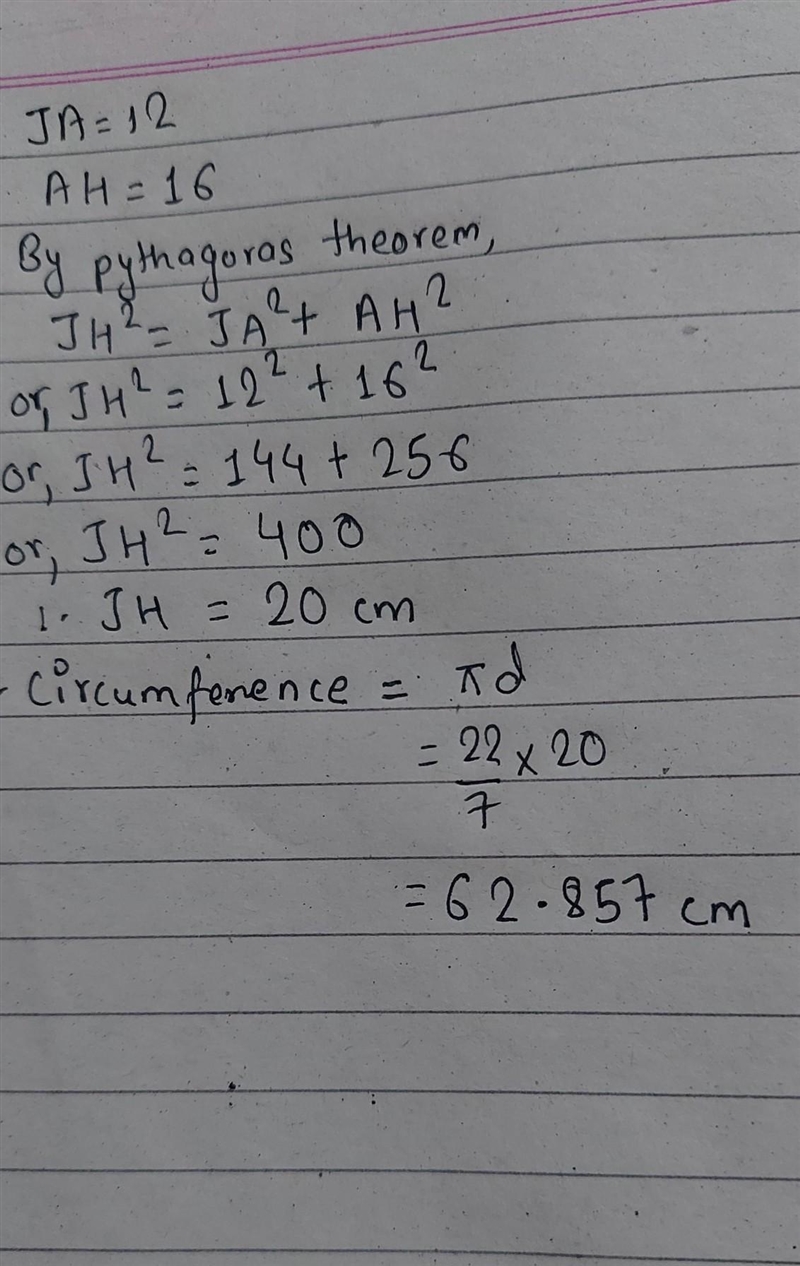 JA = 12
AH = 16
By pythagoras theorem,
JH² = JA² + AH²
or, JH² = 12² + 16²
or, JH² = 144 + 256
or, JH² = 400
∴ JH = 20 cm
Circumference = πd
= 22/7 × 20
= 62.857 cm